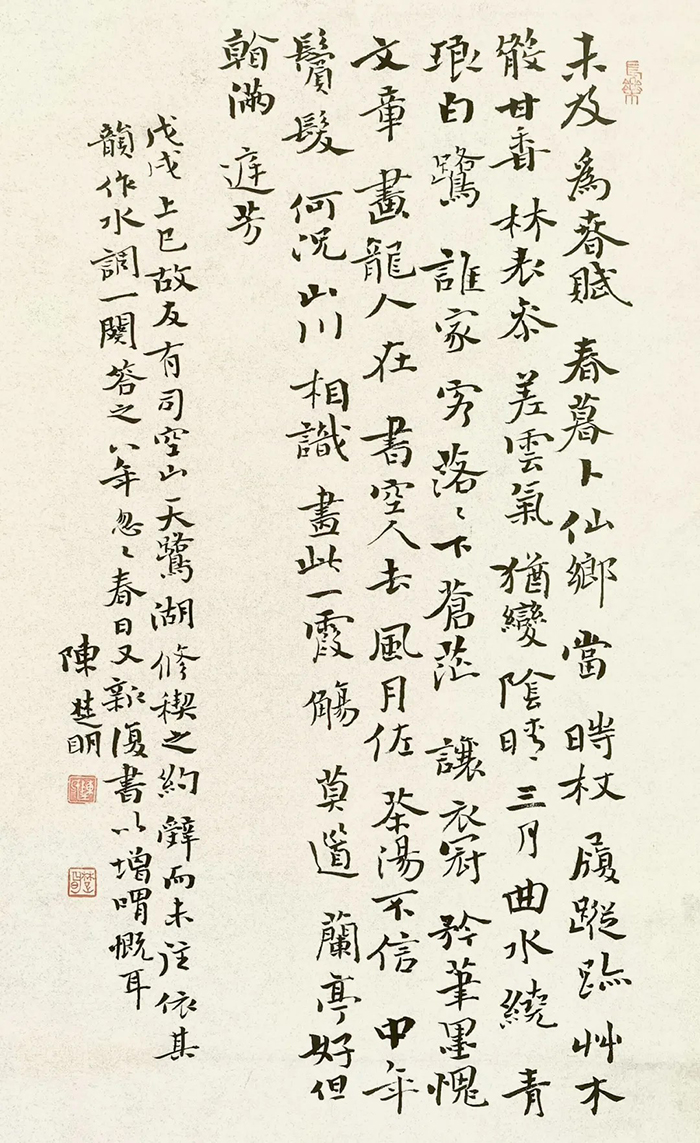 未及爲春賦春暮卜仙鄉當時杖履蹤跡艸木
散甘香林表参差雲氣猶變陰晴三月曲水繞青
琅白鷺誰家客落〻下蒼茫讓衣冠矜筆墨愧
文章畫龍人在書空人去風月佐茶湯不信中年
鬢髮何況山川相識盡此一霞觴莫道蘭亭好但
翰滿庭芳
戊戌上巳故友有司空山天鷺湖修禊之約辭而未往依其
韻作水調一闋答之八年忽〻春日又新復書以增喟慨耳
陳楚明